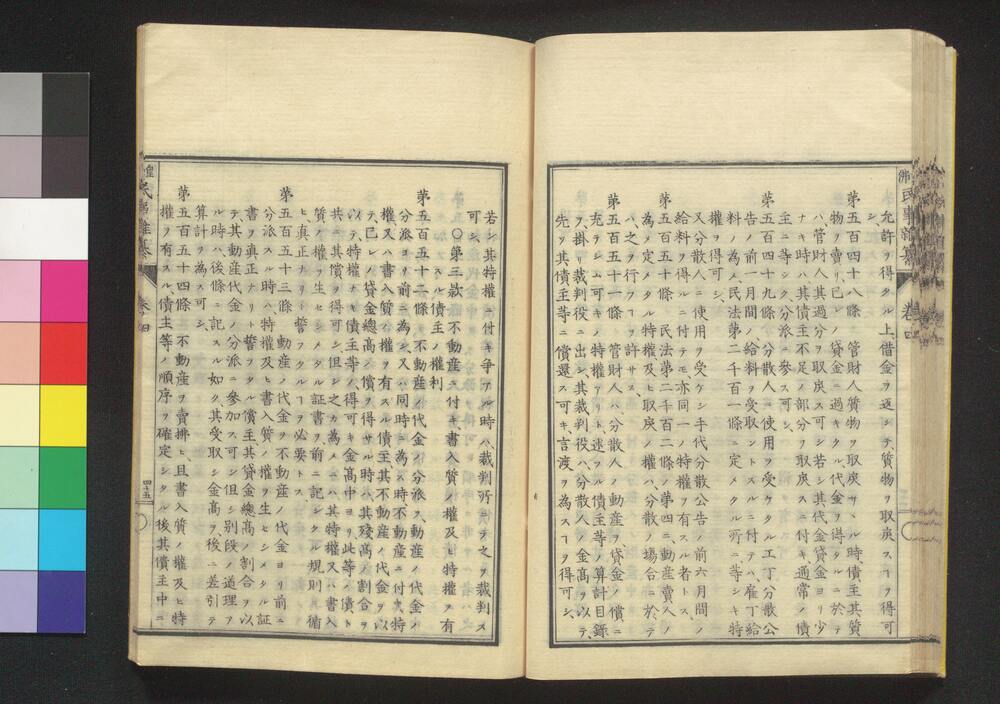 允許ヲ得タル上借金ヲ返シテ質物ヲ取戾スヿヲ得可
シ、
第五百四十八條 管財人質物ヲ取戾サヽル時債主其質
物ヲ賣リ、已レノ貸金ニ過キタル代金ヲ得タルニ於テ
ハ、管財人其過分ヲ取戾ス可シ若シ其代金貸金ヨリ少
ナキ時ハ其債主不足ノ部分ヲ取戾スニ付キ通常ノ債
主ニ等シク、分派ニ參ス可シ、
第五百四十九條 分散人ニ使用ヲ受ケタル工丁分散公
告ノ前一月間ノ給料ヲ受取ントスルニ付テハ、雇丁給
料ノ為メ民法第二千百一條ニ定メタル所ニ等シキ特
權ヲ得可シ、
又分散人ニ使用ヲ受ケシ手代分散公告ノ前六月間ノ
給料ヲ得ルニ付テモ亦同一ノ特權ヲ有スル者トス、
第五百五十條 民法第二千百二條ノ第四ニ、動產賣人ノ
為メ定メタル特權及ヒ取戾ノ權ハ、分散ノ場合ニ於テ
ハ、之ヲ行フヿヲ許サス、
第五百五十一條 管財人ハ分散人ノ動產ヲ貸金ノ償ニ
充テシム可キノ特權アリト述フル債主等ノ算計目錄
ヲ、掛リ裁判役ニ出シ、其裁判役ハ、分散人ノ金高ヲ以テ、
先ツ其債主等ニ償還ス可キ、言渡ヲ為スヿヲ得可シ、
佛 民事雜纂 卷四
若シ其特權ニ付キ爭アル時ハ、裁判所ニテ之ヲ裁判ス
可シ、
〇第三款 不動產ニ付キ、書入質ノ權及ヒ特權ヲ有
スル債主ノ權利
第五百五十二條 不動產ノ代金ノ分派ヲ、動產ノ代金ノ
分派ヨリ前ニ為シ、又ハ同時ニ為ス時不動產ニ付キ特
權又ハ書入質ノ權ヲ有スル債主其不動產ノ代金ヲ以
テ、已レノ貸金總高ノ償ヲ得サル時ハ、其殘高ノ割合ヲ
以テ、特權ナキ債主等ノ、得可キ金高中ヨリ、此等ノ債主ト
共ニ其償ヲ得可シ但シ之カ為メニハ其特權又ハ書入
質ノ權ヲ生セシメタル証書ヲ前ニ記シタル規則ニ循
ヒ真正ナリト誓フタルヿヲ必要トス、
第五百五十三條 動產ノ代金ヲ不動產ノ代金ヨリ前ニ
分派スル時ハ、特權及ヒ書入質ノ權ヲ生セシメタル証
書ヲ真正ナリト誓ヲタル債主其貸金總高ノ割合ヲ以
テ、其動產代金ノ分派ニ參加ス可シ但シ別段ノ道理ア
ル時ハ後條ニ記スル如ク、其受取シ金高ヲ、後ニ差引テ
算計ヲ為ス可シ、
第五百五十四條 不動產ヲ賣拂ヒ、且書入質ノ權及ヒ特
權ヲ有スル、債主等ノ順序ヲ確定シタル後其債主中ニ
民事雜纂 卷四
四十五